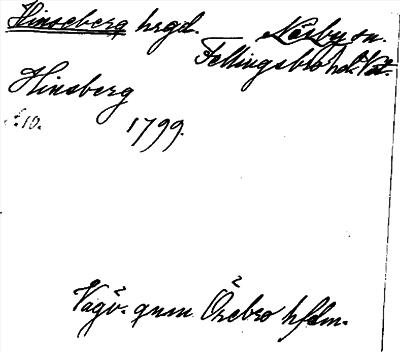 Hinseberg hrgd. Näsby sn.
Fellingsbro hd. Vstm.
Hinsberg
s. 10. 1799.
Vägv. gnm Örebro hfdm.